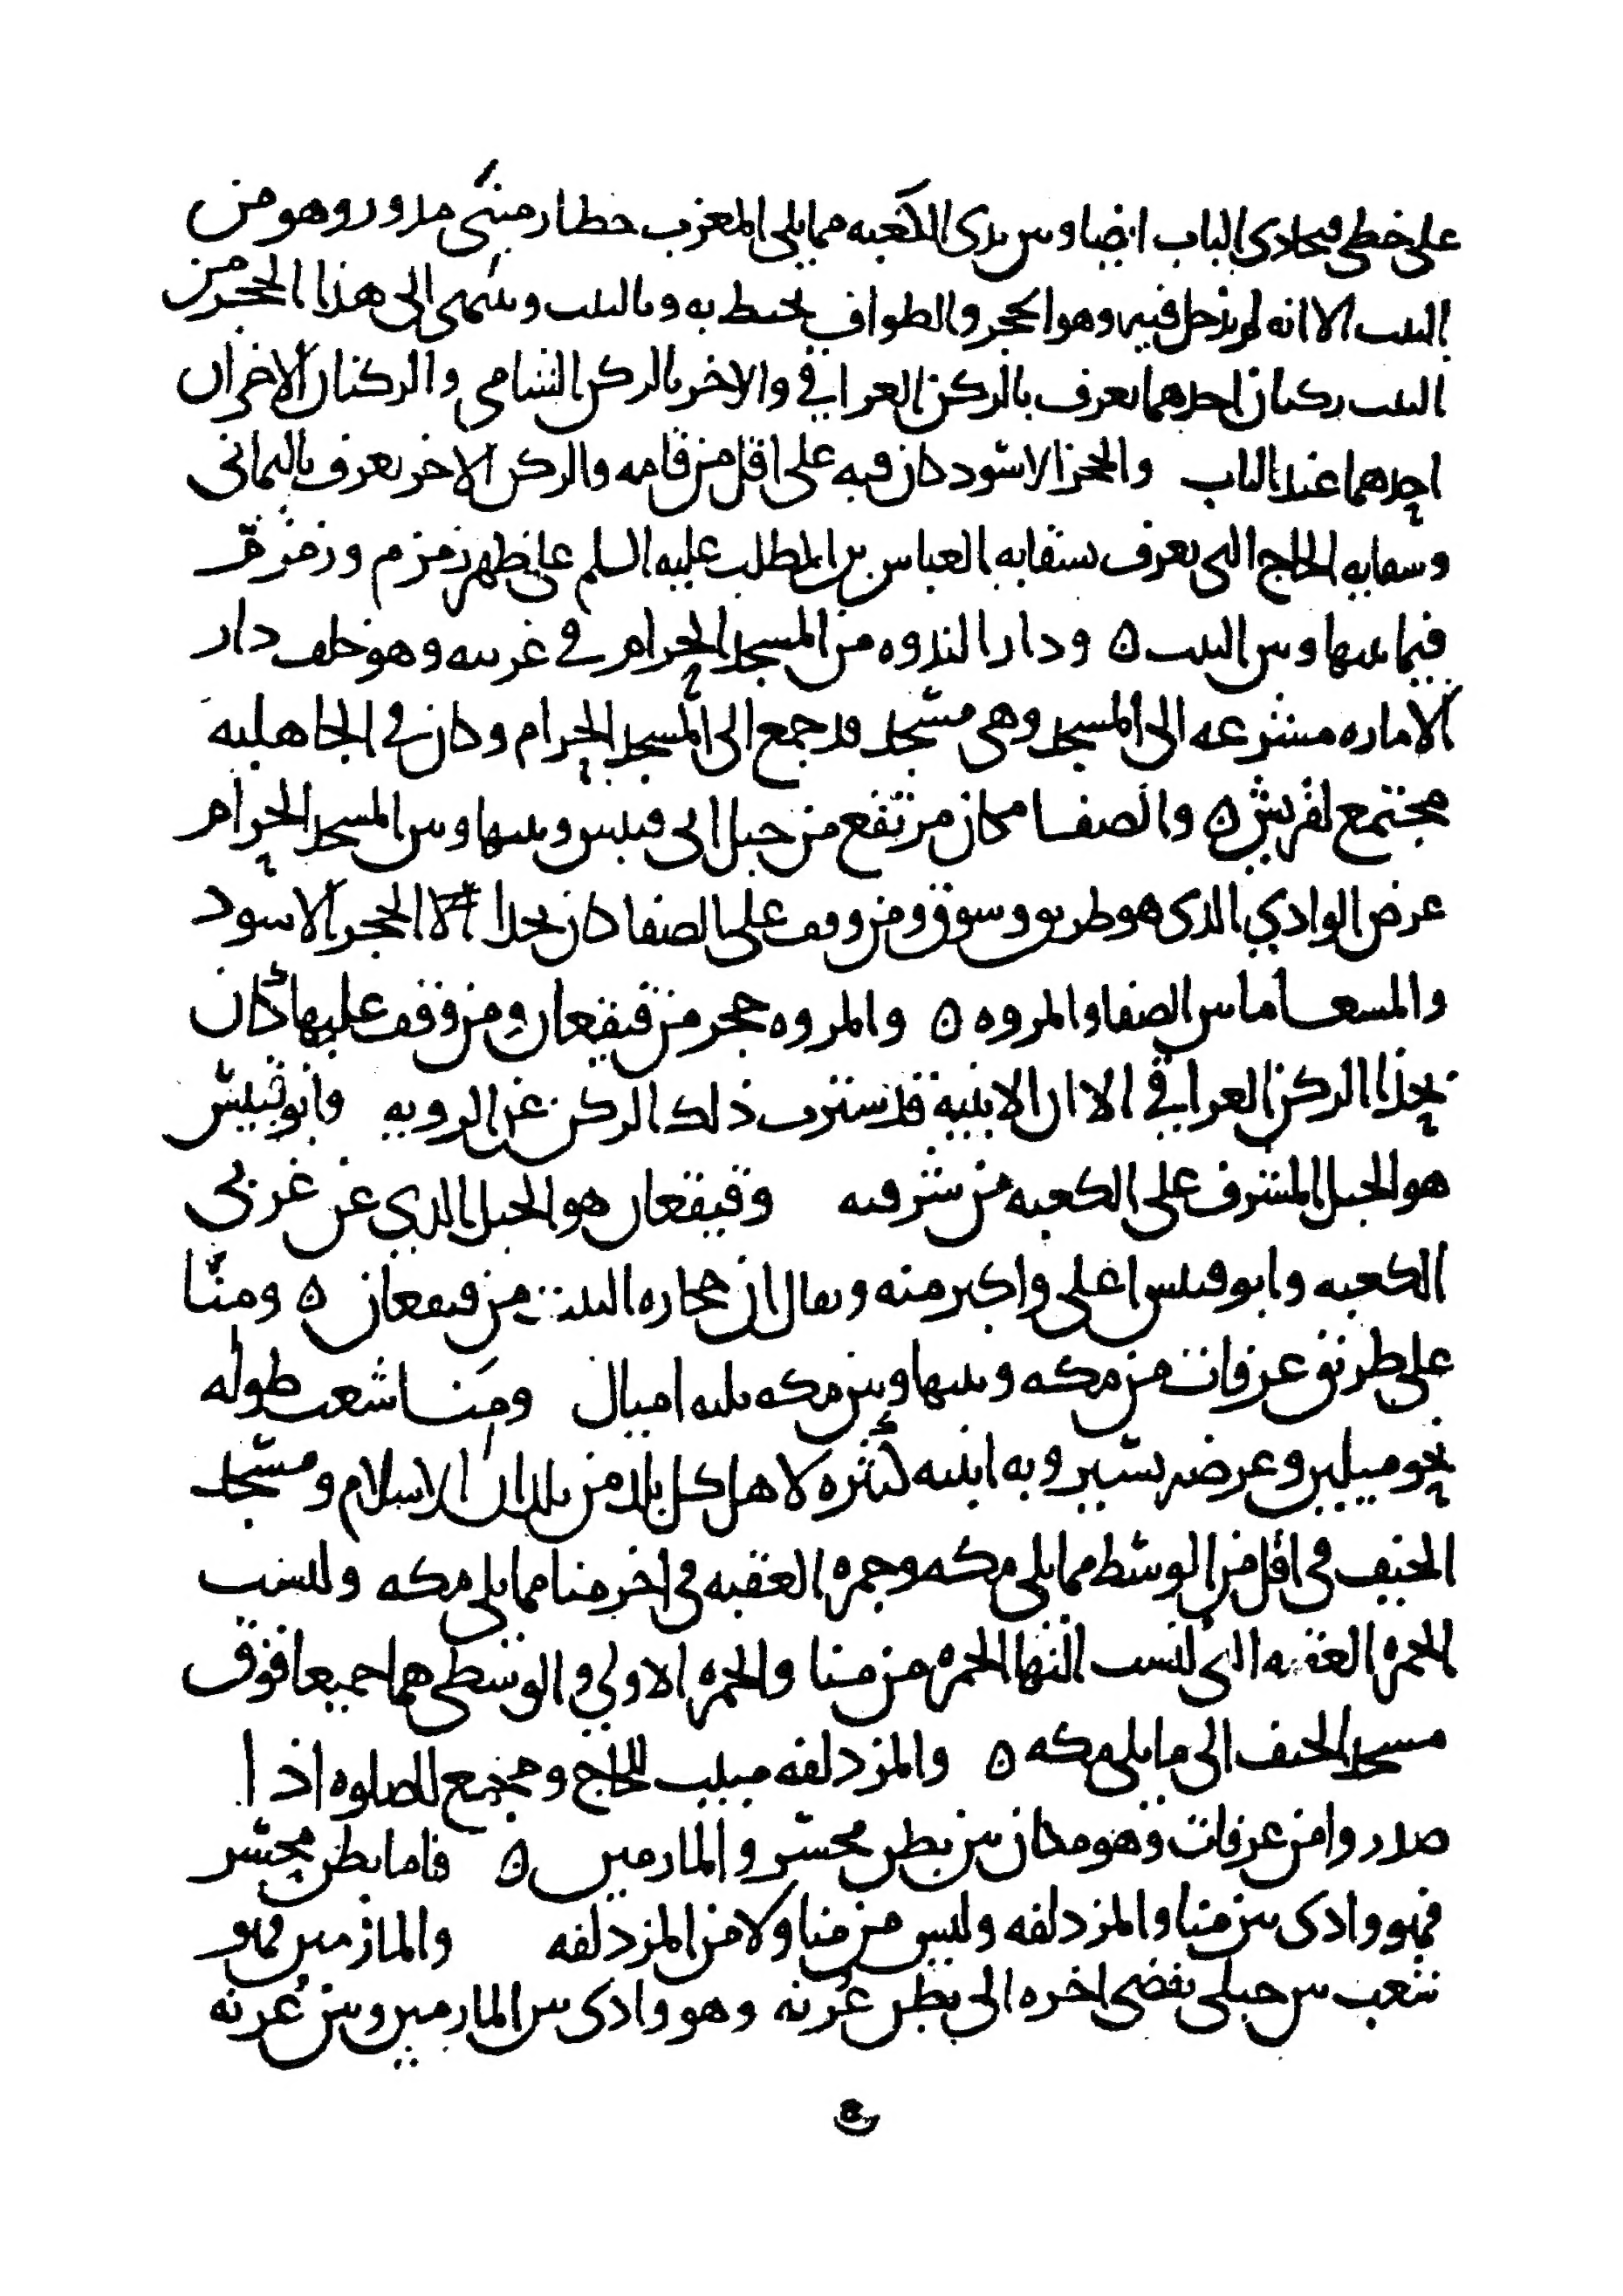 على خطى محاذى الباب ايضا وبين يدى الكعبه مما يلى المغرب حطار مبنى مدور وهو من
البيت الا انه لم يدخل فيه وهو الحجر والطواف يحيط به وبالبيت وينتهى الى هذا الحجر من
البيت ركنان احدهما يعرف بالركن العراقي والاخر بالركن الشامى والركنان الاخران
احدهما عند الباب والحجر الاسود كان فيه على اقل من قامه والركن الاخر يعرف باليمانى
وسقايه الحاج التى تعرف بسقايه العباس بن المطلب عليه السلم على ظهر زمزم وزمزم
فيما بينها وبين البيت ٥ ودار الندوه من المسجد الحرام في غربيه وهو خلف دار
الاماره مشرعه الى المسجد وهى مسجد قد جمع الى المسجد الحرام وكان في الجاهليه
مجتمع لقريش ٥ والصفا مكان مرتفع من جبل ابى قبيس وبينها وبين المسجد الحرام
عرض الوادي الذى هو طريق وسوق ومن وقف على الصفا كان بحذا الحجر الاسود
والمسعا ما بين الصفا والمروه ٥ والمروه حجر من قيقعان ومن وقف عليها كان
بحذا الركن العراقي الا ان الابنيه قد سترت ذلك الركن عن الرويه وابو قبيس
هو الجبل المشرف على الكعبه من شرقيه وقيقعان هو الجبل الذي عن غربى
الكعبه وابو قبيس اعلى واكبر منه ويقال ان حجاره البيت من قيقعان ٥ ومنّا
على طريق عرفات من مكه وبينها وبين مكه ثلثه اميال ومنا شعب طوله
نحو ميلين وعرضه يسير وبه ابنيه كثيره لاهل كل بلد من بلدان الاسلام ومسجد
الخيف فى اقل من الوسط مما يلى مكه وجمره العقبه فى اخر منا مما يلى مكه وليست
الجمره العقبه التى تنسب اليها الجمره من منا والجمره الاولي والوسطى هما جميعا فوق
مسجد الخيف الى ما يلى مكه ٥ والمزدلفه مبيت للحاج ومجمع للصلوه اذا
صدروا من عرفات وهو مكان بين بطن محسر والمازمين ٥ فاما بطن محسر
فهو وادى بين منا والمزدلفه وليس من منا ولا من المزدلفه والمازمين فهو
شعب بين جبلى يفضى اخره الى بطن عُرنه وهو وادى بين المازمين وبين عُرنه